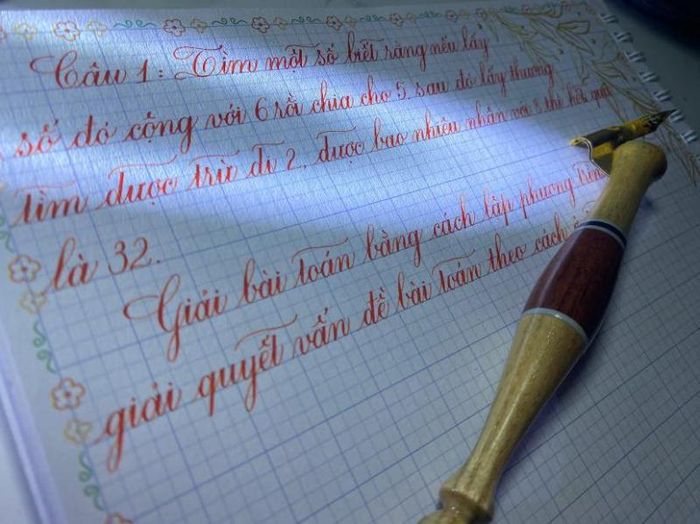 Câu 1: Tìm một số biết rằng nếu lấy
số đó cộng với 6 rồi chia cho 5, sau đó lấy thương
tìm được trừ đi 2, được bao nhiêu nhân với 8 thì kết quả
là 32.
Giải bài toán bằng cách lập phương trình
giải quyết vấn đề bài toán theo cách